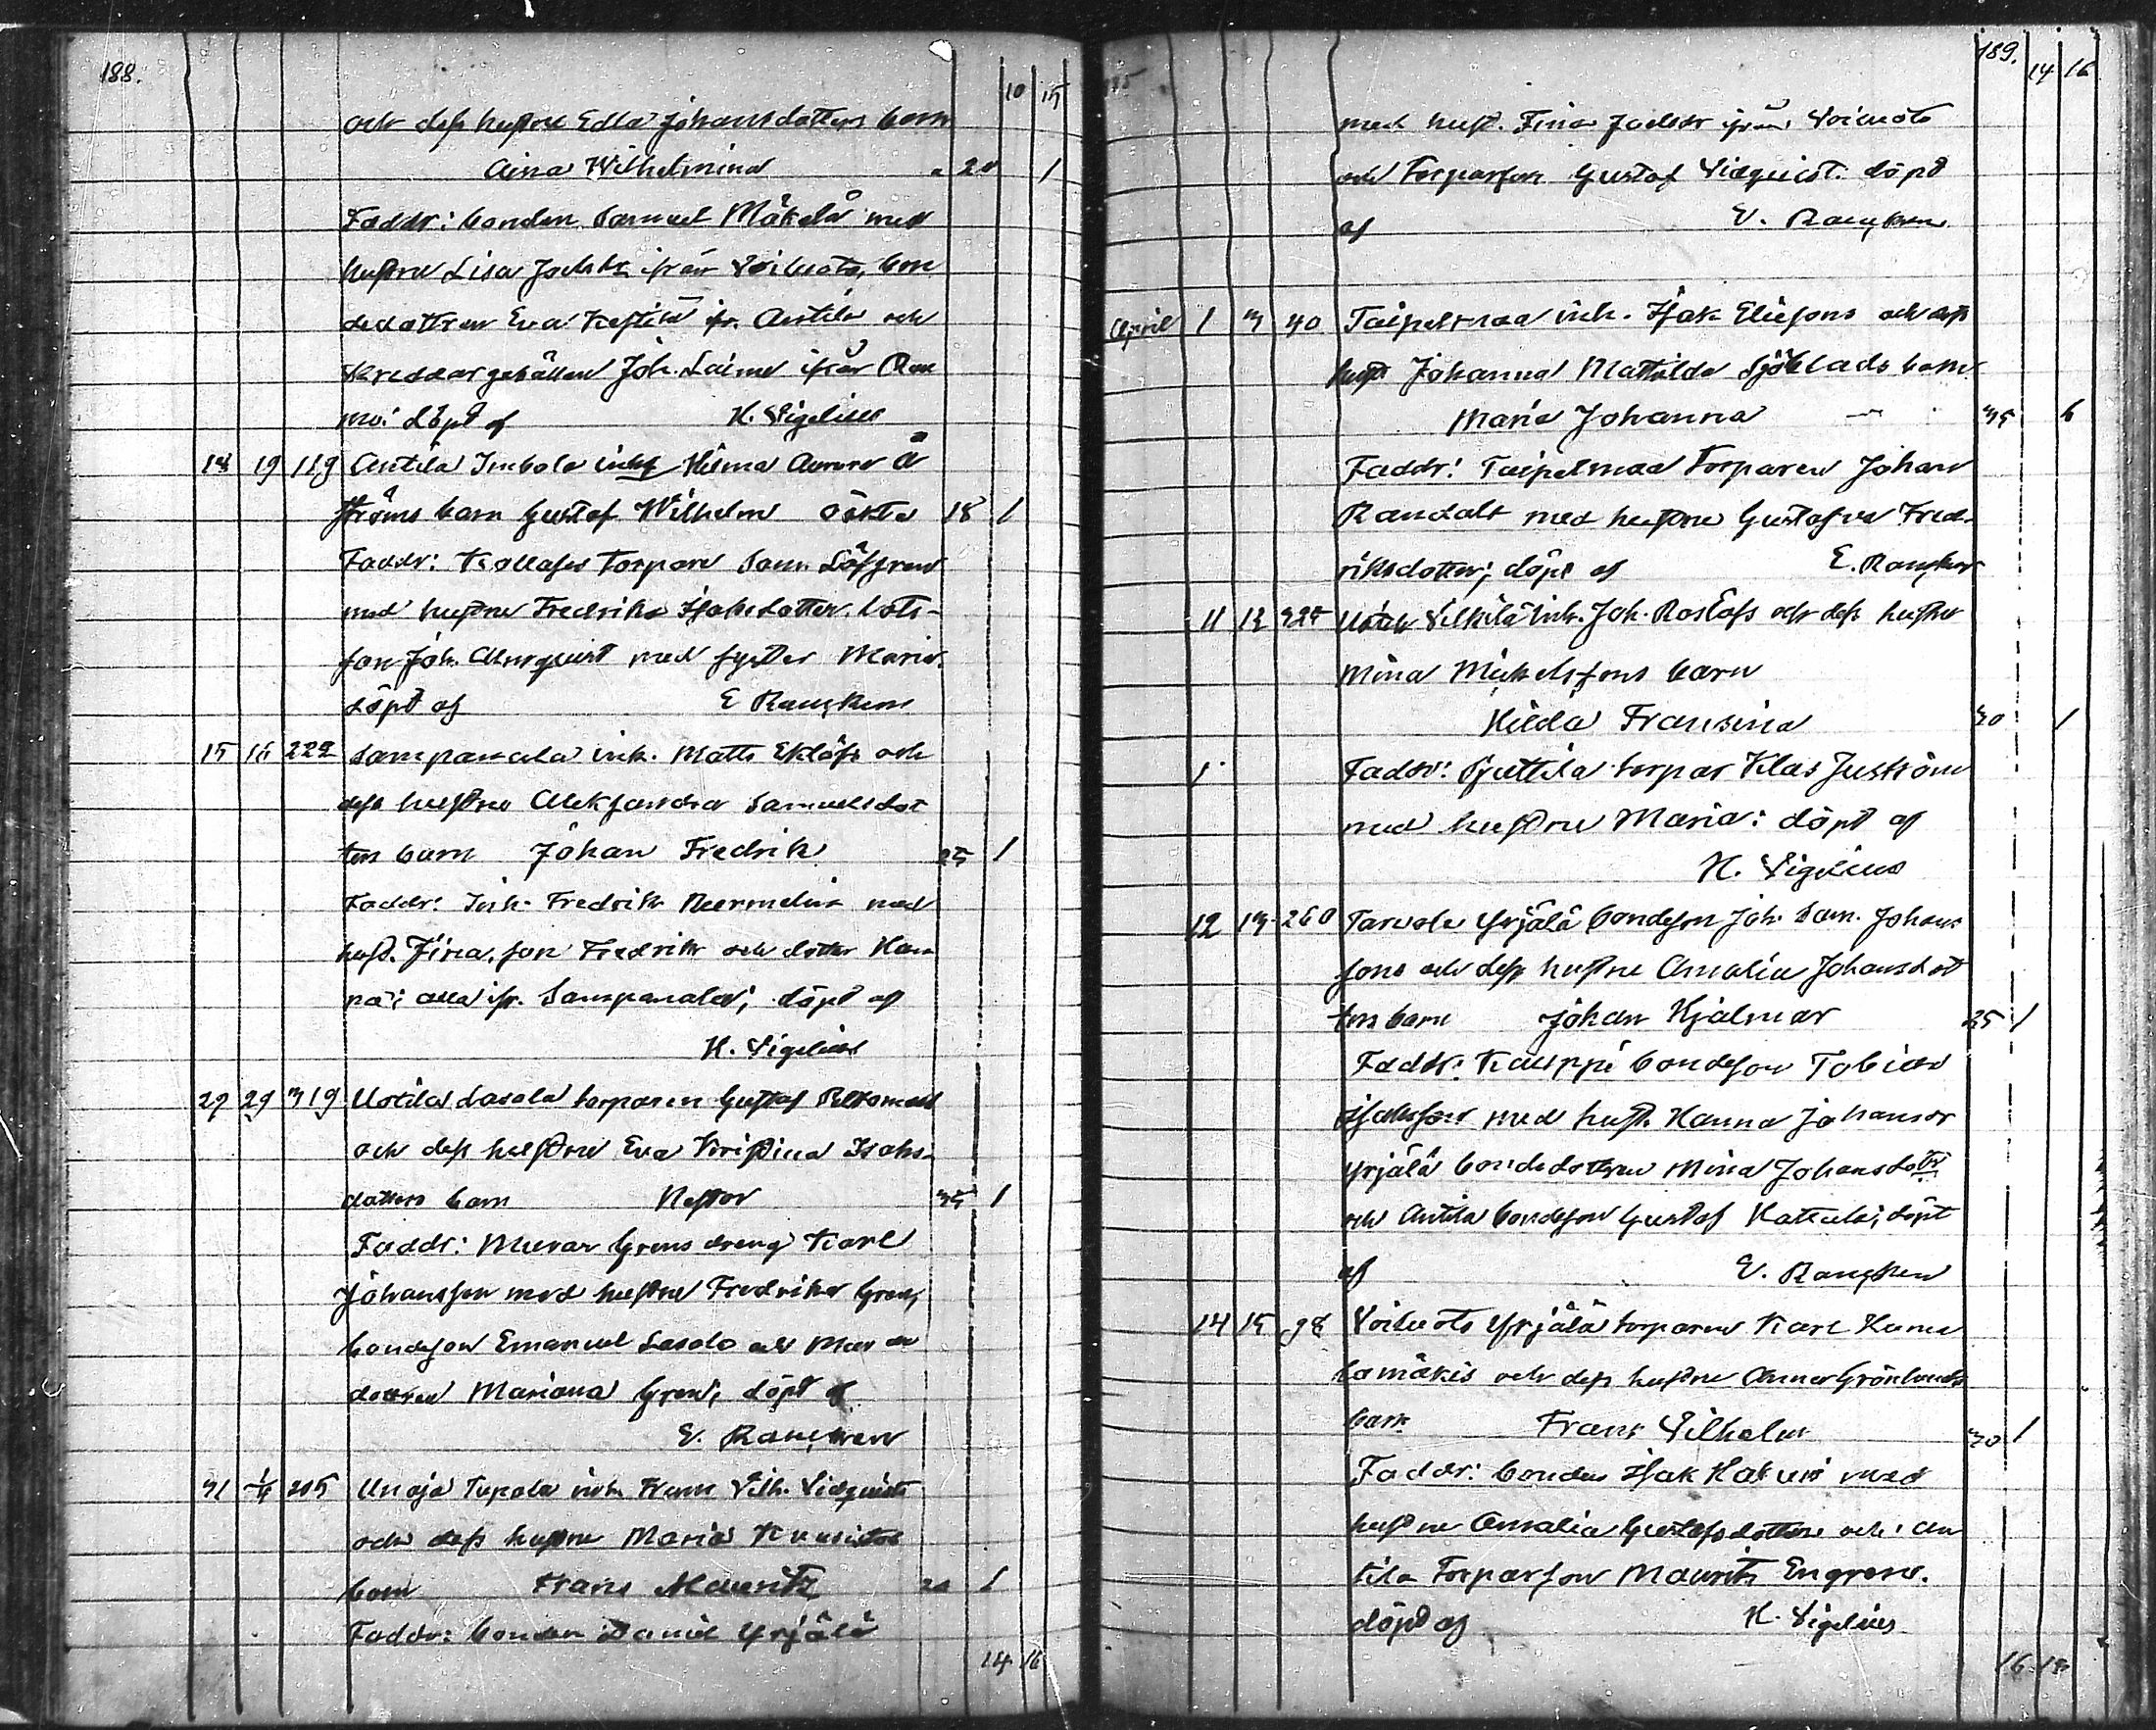 188.
10 15
och dess hustru Edla Johansdotters barn
Aina Wilhelmina 20 1
Faddr: bonden Samuel Mäkelä med
hustru Lisa från Voiluoto, bon
dedottren Eva fr. Antila och
skreddargesällen Joh. Laine ifrån Rau
mo: döpt af H. Vigelius
18 19 119 Antila Inhola Hilma Aurora Å
ströms barn Gustaf Wilhelm oäkta 18 1
Faddr: Torpare Sam. Löfgren
med hustru Fredrika Isaksdotter. Lots-
son Joh. Almqvist med syster Maria.
döpt af E Rancken
15 16 222 Sampanala inh. Matts Eklöfs och
dess hustru Aleksandra Samuelsdot
ters barn Johan Fredrik 25 1
Faddr: Inh. Fredrik med
hust. Fina, son Fredrik och dotter Han
na; alla ifr. Sampanala; döpt af
H. Vigelius
29 29 319 Uotila Lasola torparen Gustaf
och dess hustru Eva Kristina Isaks-
dotters barn Nestor 35 1
Faddr: Murar Grens dreng Karl
Johansson med hustru Fredrika Gren,
bondeson Emanuel Lasola och
dottren Mariana Gren, döpt af
E. Rancken
31 1/4 205 Unaja Tupala inh. Frans Vilh. Vidqvists
och dess hustru Maria
barn Frans Mauritz 20 1
Faddr: bonden Daniel Yrjälä
14 16
189.
14 16
med hust. Fina ifrån Voiluoto
och Torparson Gustaf Vidqvist. döpt
af E. Rancken
April 1 3 40 Taipelmaa inh. Isak Eliesons och dess
hust Johanna Mathilda Sjöblads barn
Maria Johanna 35 6
Faddr: Taipelmaa Torparen Johan
Randalt med hustru Gustafva Fred-
riksdotter; döpt af E. Rancken
11 12 Joh. Roslöfs och dess hustru
Mina Mickelssons barn
Hilda Fransina 30 1
1 Faddr: torpar Klas Juström
med hustru Maria: döpt af
H. Vigelius
12 13 260 Tarvola Yrjälä bondeson Joh. Sam. Johans
sons och dess hustru Amalia Johansdot
ters barn Johan Hjalmar 25 1
Faddr: Kauppi bondeson Tobias
Isaksson med hust. Hanna Johansdr
Yrjälä bondedottren Mina Johansdottr
och Antila bondeson Gustaf Kattelu; döpt
af E. Rancken
14 15 98 Voiluoto Yrjälä torparen Karl
lamäkis och dess hustru Anna Grönlunds
barn Frans Vilhelm 30 1
Faddr: bonden Isak Hakuri med
hustru Amalia Gustafsdotter och An
tila Torparson Maurits Engren.
döpt af H. Vigelius
16 18